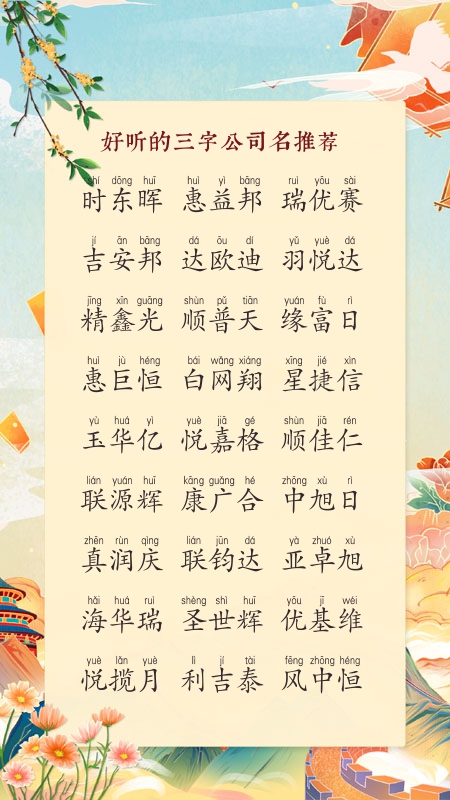 好听的三字公司名推荐
shí dōng huī huì yì bāng ruì yōu sài
时东晖 惠益邦 瑞优赛
jí ān bāng dá ōu dí yǔ yuè dá
吉安邦 达欧迪 羽悦达
jīng xīn guāng shùn pǔ tiān yuán fù rì
精鑫光 顺普天 缘富日
huì jù héng bái wǎng xiáng xīng jié xìn
惠巨恒 白网翔 星捷信
yù huá yì yuè jiā gé shùn jiā rén
玉华亿 悦嘉格 顺佳仁
lián yuán huī kāng guǎng hé zhōng xù rì
联源辉 康广合 中旭日
zhēn rùn qìng lián jūn dá yà zhuó xù
真润庆 联钧达 亚卓旭
hǎi huá ruì shèng shì huī yōu jī wéi
海华瑞 圣世辉 优基维
yuè lǎn yuè lì jí tài fēng zhōng héng
悦揽月 利吉泰 风中恒